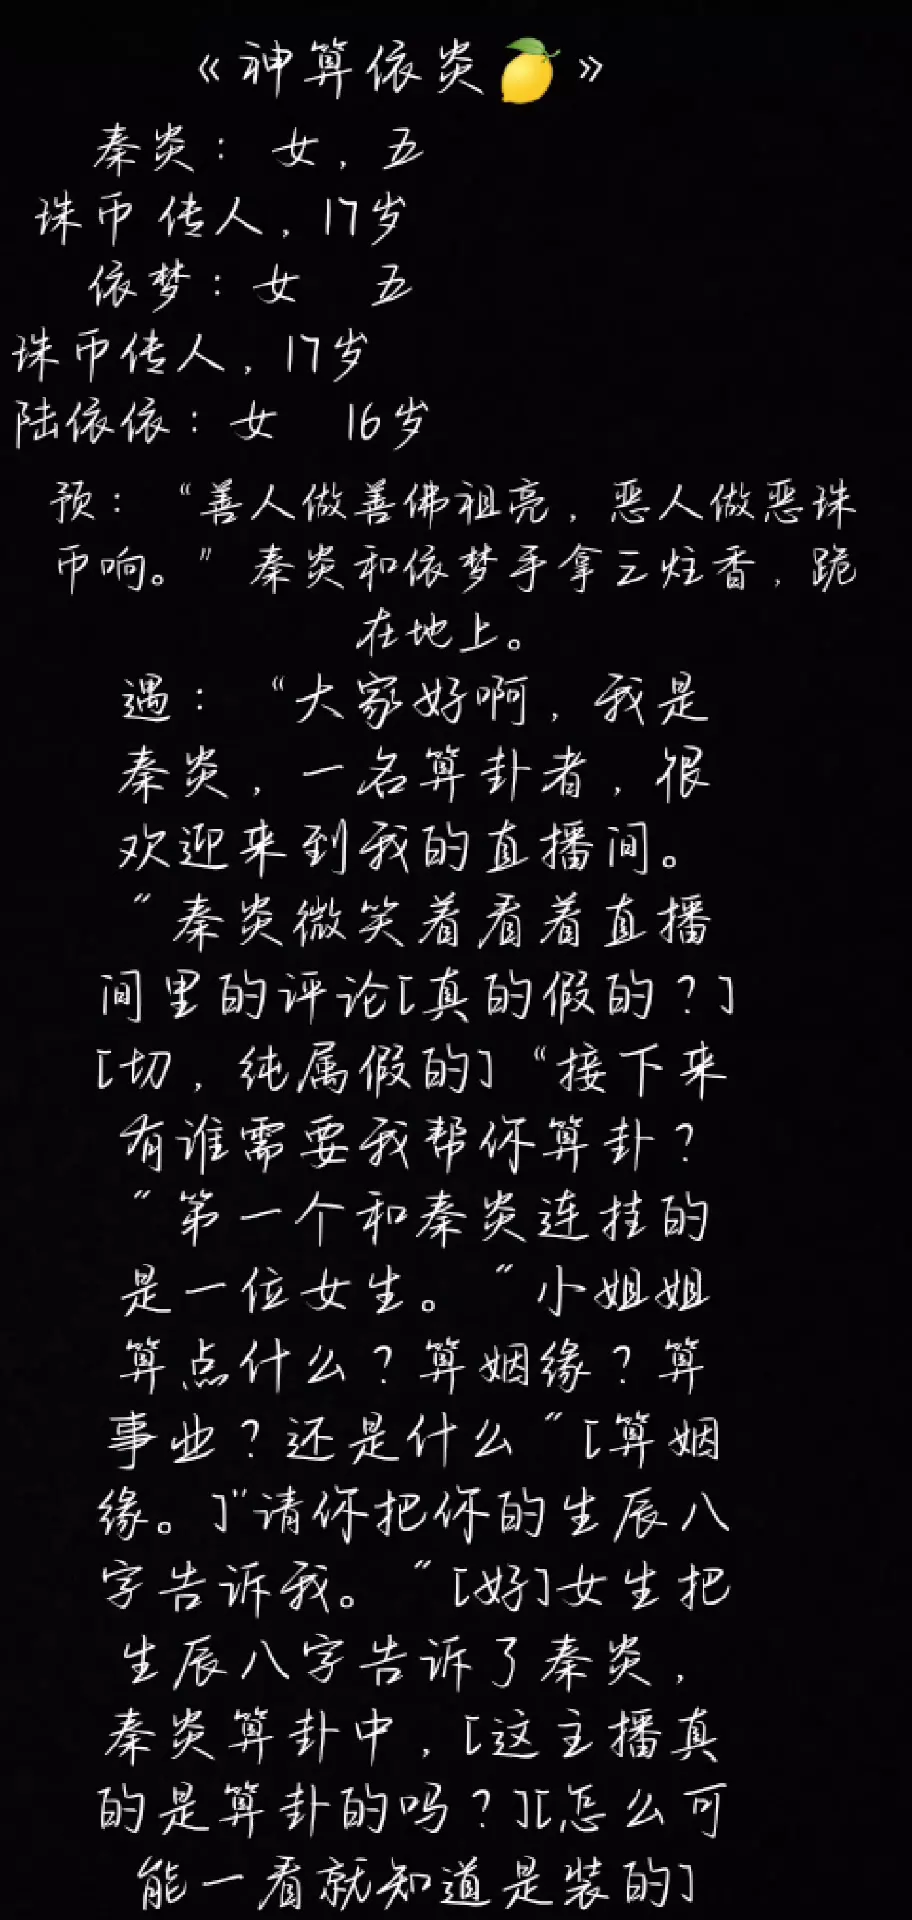 《神算依炎🍋》
秦炎：女，五
珠币 传人，17岁
依梦：女 五
珠币传人，17岁
陆依依：女 16岁
预：“善人做善佛祖亮，恶人做恶珠
币响。”秦炎和依梦手拿三炷香，跪
在地上。
遇：“大家好啊，我是
秦炎，一名算卦者，很
欢迎来到我的直播间。
”秦炎微笑着看着直播
间里的评论[真的假的？]
[切，纯属假的]“接下来
有谁需要我帮你算卦？
”第一个和秦炎连挂的
是一位女生。”小姐姐
算点什么？算姻缘？算
事业？还是什么”[算姻
缘。]”请你把你的生辰八
字告诉我。”[好]女生把
生辰八字告诉了秦炎，
秦炎算卦中，[这主播真
的是算卦的吗？][怎么可
能一看就知道是装的]